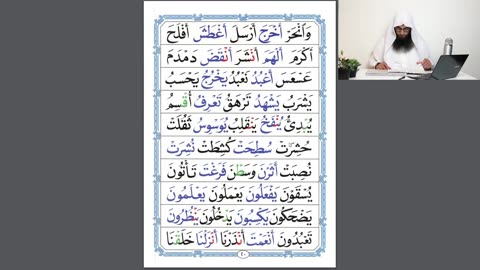 وَانْحَرْ أَخْرَجَ أَرْسَلَ أَغْطَشَ أَفْلَحَ
أَكْرَمَ أَلْهَمَ أَنْشَرَ أَنْقَضَ دَمْدَمَ
عَسْعَسَ أَعْبُدُ نَعْبُدُ يَخْرُجُ يَحْسَبُ
يَشْرَبُ يَشْهَدُ تَرْهَقُ تَعْرِفُ أُقْسِمُ
يُبْدِئُ يُنْفَخُ يَنْقَلِبُ يُوَسْوِسُ ثَقُلَتْ
حُشِرَتْ سُطِحَتْ كُشِطَتْ نُشِرَتْ
نُصِبَتْ أَثَرْنَ وَسَطْنَ فَرَغْتَ تَأْتُونَ
يُسْقَوْنَ يَفْعَلُونَ يَعْمَلُونَ يَعْلَمُونَ
يَضْحَكُونَ يَكْسِبُونَ يَدْخُلُونَ يَنْظُرُونَ
تَعْبُدُونَ أَنْعَمْتَ أَنْذَرْنَا أَنْزَلْنَا خَلَقْنَا
٤٠